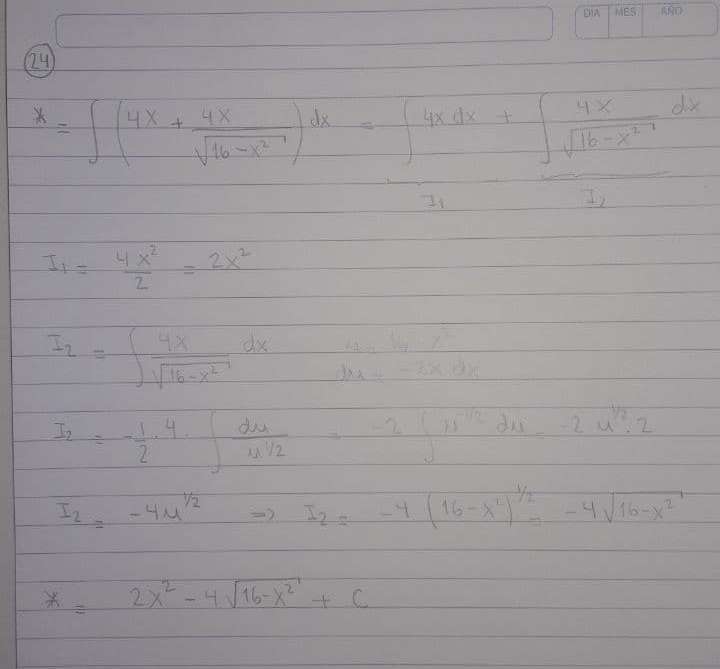 DIA MES AÑO
24
* = ∫ (4x + 4x/√(16-x²)) dx = ∫ 4x dx + ∫ 4x/√(16-x²) dx
I₁ I₂
I₁ = 4x²/2 = 2x²
I₂ = ∫ 4x/√(16-x²) dx u = 16-x²
du = -2x dx
I₂ = -1/2 · 4 · ∫ du/u^1/2 = -2 ∫ u^-1/2 du = -2 u^1/2 · 2
I₂ = -4u^1/2 => I₂ = -4 (16-x²)^1/2 = -4√(16-x²)
* = 2x² - 4√(16-x²) + C